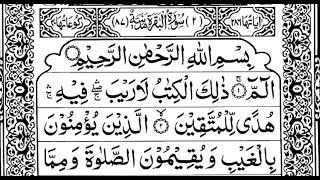 اٰیَاتُهَا ٢٨٦ (٢) سُوْرَةُ الْبَقَرَةِ مَدَنِيَّةٌ (٨٧) رُكُوْعَاتُهَا
بِسْمِ اللّٰهِ الرَّحْمٰنِ الرَّحِيْمِ
الٓمّٓ ۚ﴿١﴾ ذٰلِكَ الْكِتٰبُ لَا رَيْبَ ۛۖۚ فِيْهِ ۛۚ
هُدًى لِّلْمُتَّقِيْنَ ۙ﴿٢﴾ الَّذِيْنَ يُؤْمِنُوْنَ
بِالْغَيْبِ وَيُقِيْمُوْنَ الصَّلٰوةَ وَمِمَّا